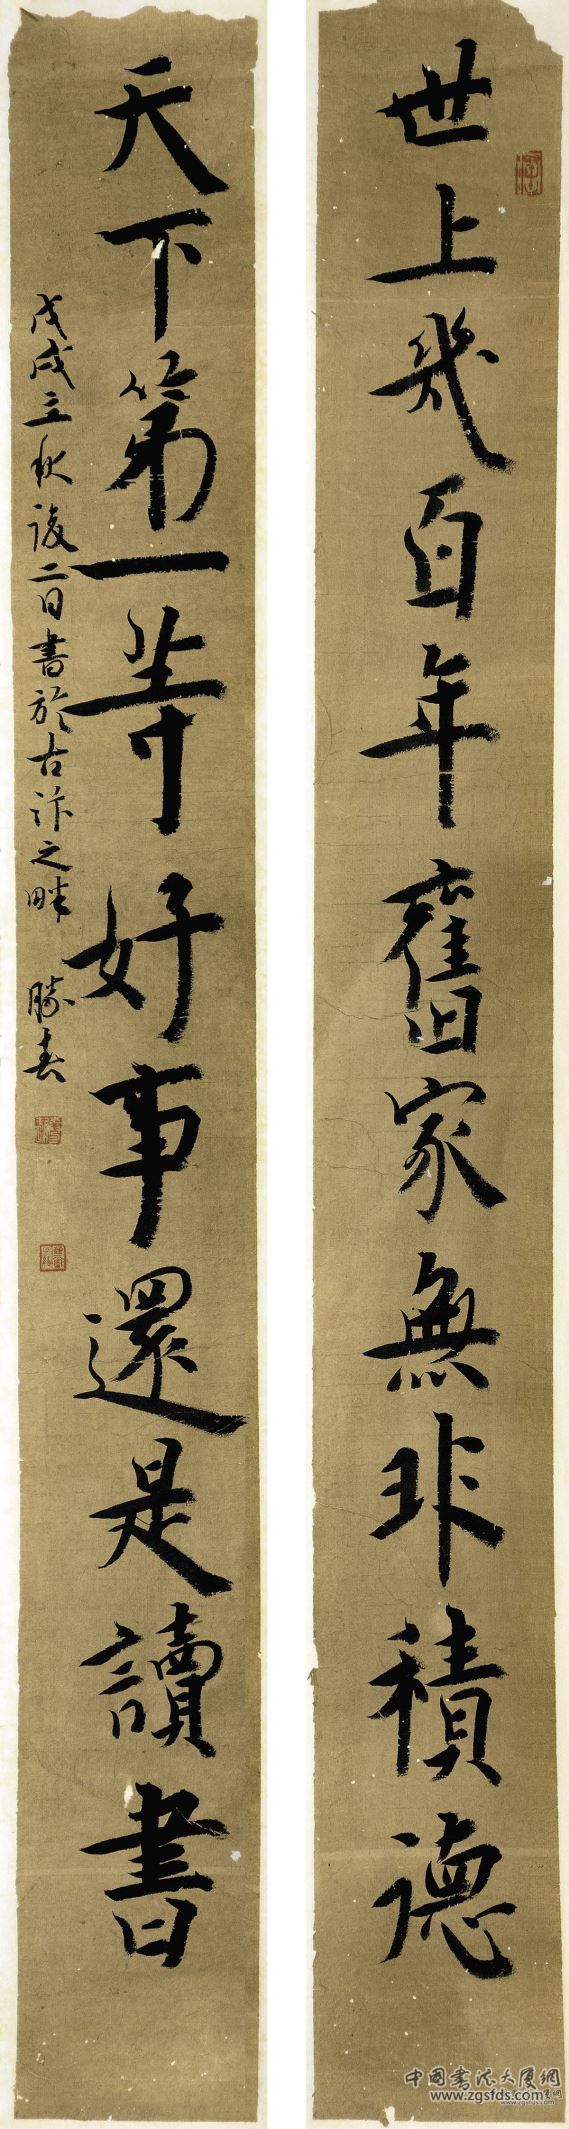 世上幾百年舊家無非積德
天下第一等好事還是讀書
戊戌立秋後二日書於古汴之畔 勝春
中國書法大廈網
www.zgsfds.com